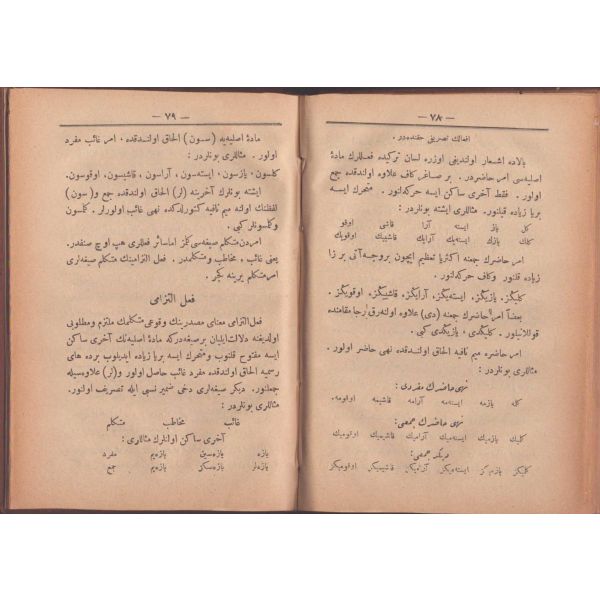 — ٧٨ —
افعالك تصريفى حقنده‌در .
بالاده اشعار اولنديغى اوزره لسان تركيده فعللرك مادۀ
اصليه‌سى امر حاضردر . بر صاغر كاف علاوه اولندقده جمع
اولور . فقط آخرى ساكن ايسه حركه‌لنور . متحرك ايسه
بريا زياده قيلنور . مثاللرى ايشته بونلردر :
كل ياز ايسته آرا قاشى اوقو
كلك يازك ايسته‌يك آرايك قاشييك اوقويك
امر حاضرك جمعنه اكثريا تعظيم ايچون بروجه آتى بر زا
زياده قلنور وكاف حركه‌لنور .
كليكز. يازيكز. ايسته‌يكز. آرايكز. قاشييكز. اوقويكز.
بعضاً امر حاضرك جمعنه (دى) علاوه اولنه‌رق رجا مقامنده
قوللانيلور . كليكدى ، يازيكدى كبى .
امر حاضره ميم نافيه الحاق اولندقده نهى حاضر اولور .
مثاللرى بونلردر :
نهى حاضرك مفردى :
كلمه يازمه ايسته‌مه آرامه قاشيمه اوقومه.
نهى حاضرك جمعى :
كلميك يازميك ايسته‌ميك آراميك قاشيميك اوقوميك
ديكر جمعى :
كلميكز يازميكز ايسته‌ميكز آراميكز قاشيميكز اوقوميكز
— ٧٩ —
مادۀ اصليه‌يه (سون) الحاق اولندقده ، امر غائب مفرد
اولور . مثاللرى بونلردر :
كلسون ، يازسون ، ايسته‌سون ، آراسون ، قاشيسون. اوقوسون.
ايشته بونلرك آخرينه (لر) الحاق اولندقده جمع و(سون)
لفظنك اولنه ميم نافيه كتورلدكده نهى غائب اولورلر . كلمسون
وكلمسونلر كبى .
امردن متكلم صيغه‌سى كلمز اماسائر فعللرى هپ اوچ صنفدر.
يعنى غائب ، مخاطب ومتكلمدر . فعل التزامينك متكلم صيغه‌لرى
امر متكلم يرينه كچر .
فعل التزامى
فعل التزامى معناى مصدرينك وقوعى متكلمك ملتزم ومطلوبى
اولديغنه دلالت ايليان برصيغه‌دركه مادۀ اصليه‌نك آخرى ساكن
ايسه مفتوح قلنوب ومتحرك ايسه بريا زياده ايديلوب برده هاى
رسميه الحاق اولندقده مفرد غائب حاصل اولور و(لر) علاوه‌سيله
جمعلنور. ديكر صيغه‌لرى دخى ضمير نسبى ايله تصريف اولنور.
مثاللرى بونلردر :
غائب مخاطب متكلم
آخرى ساكن اولانلرك مثاللرى :
يازه يازه‌سين يازه‌يم مفرد
يازه‌لر يازه‌سكز يازه‌يم جمع